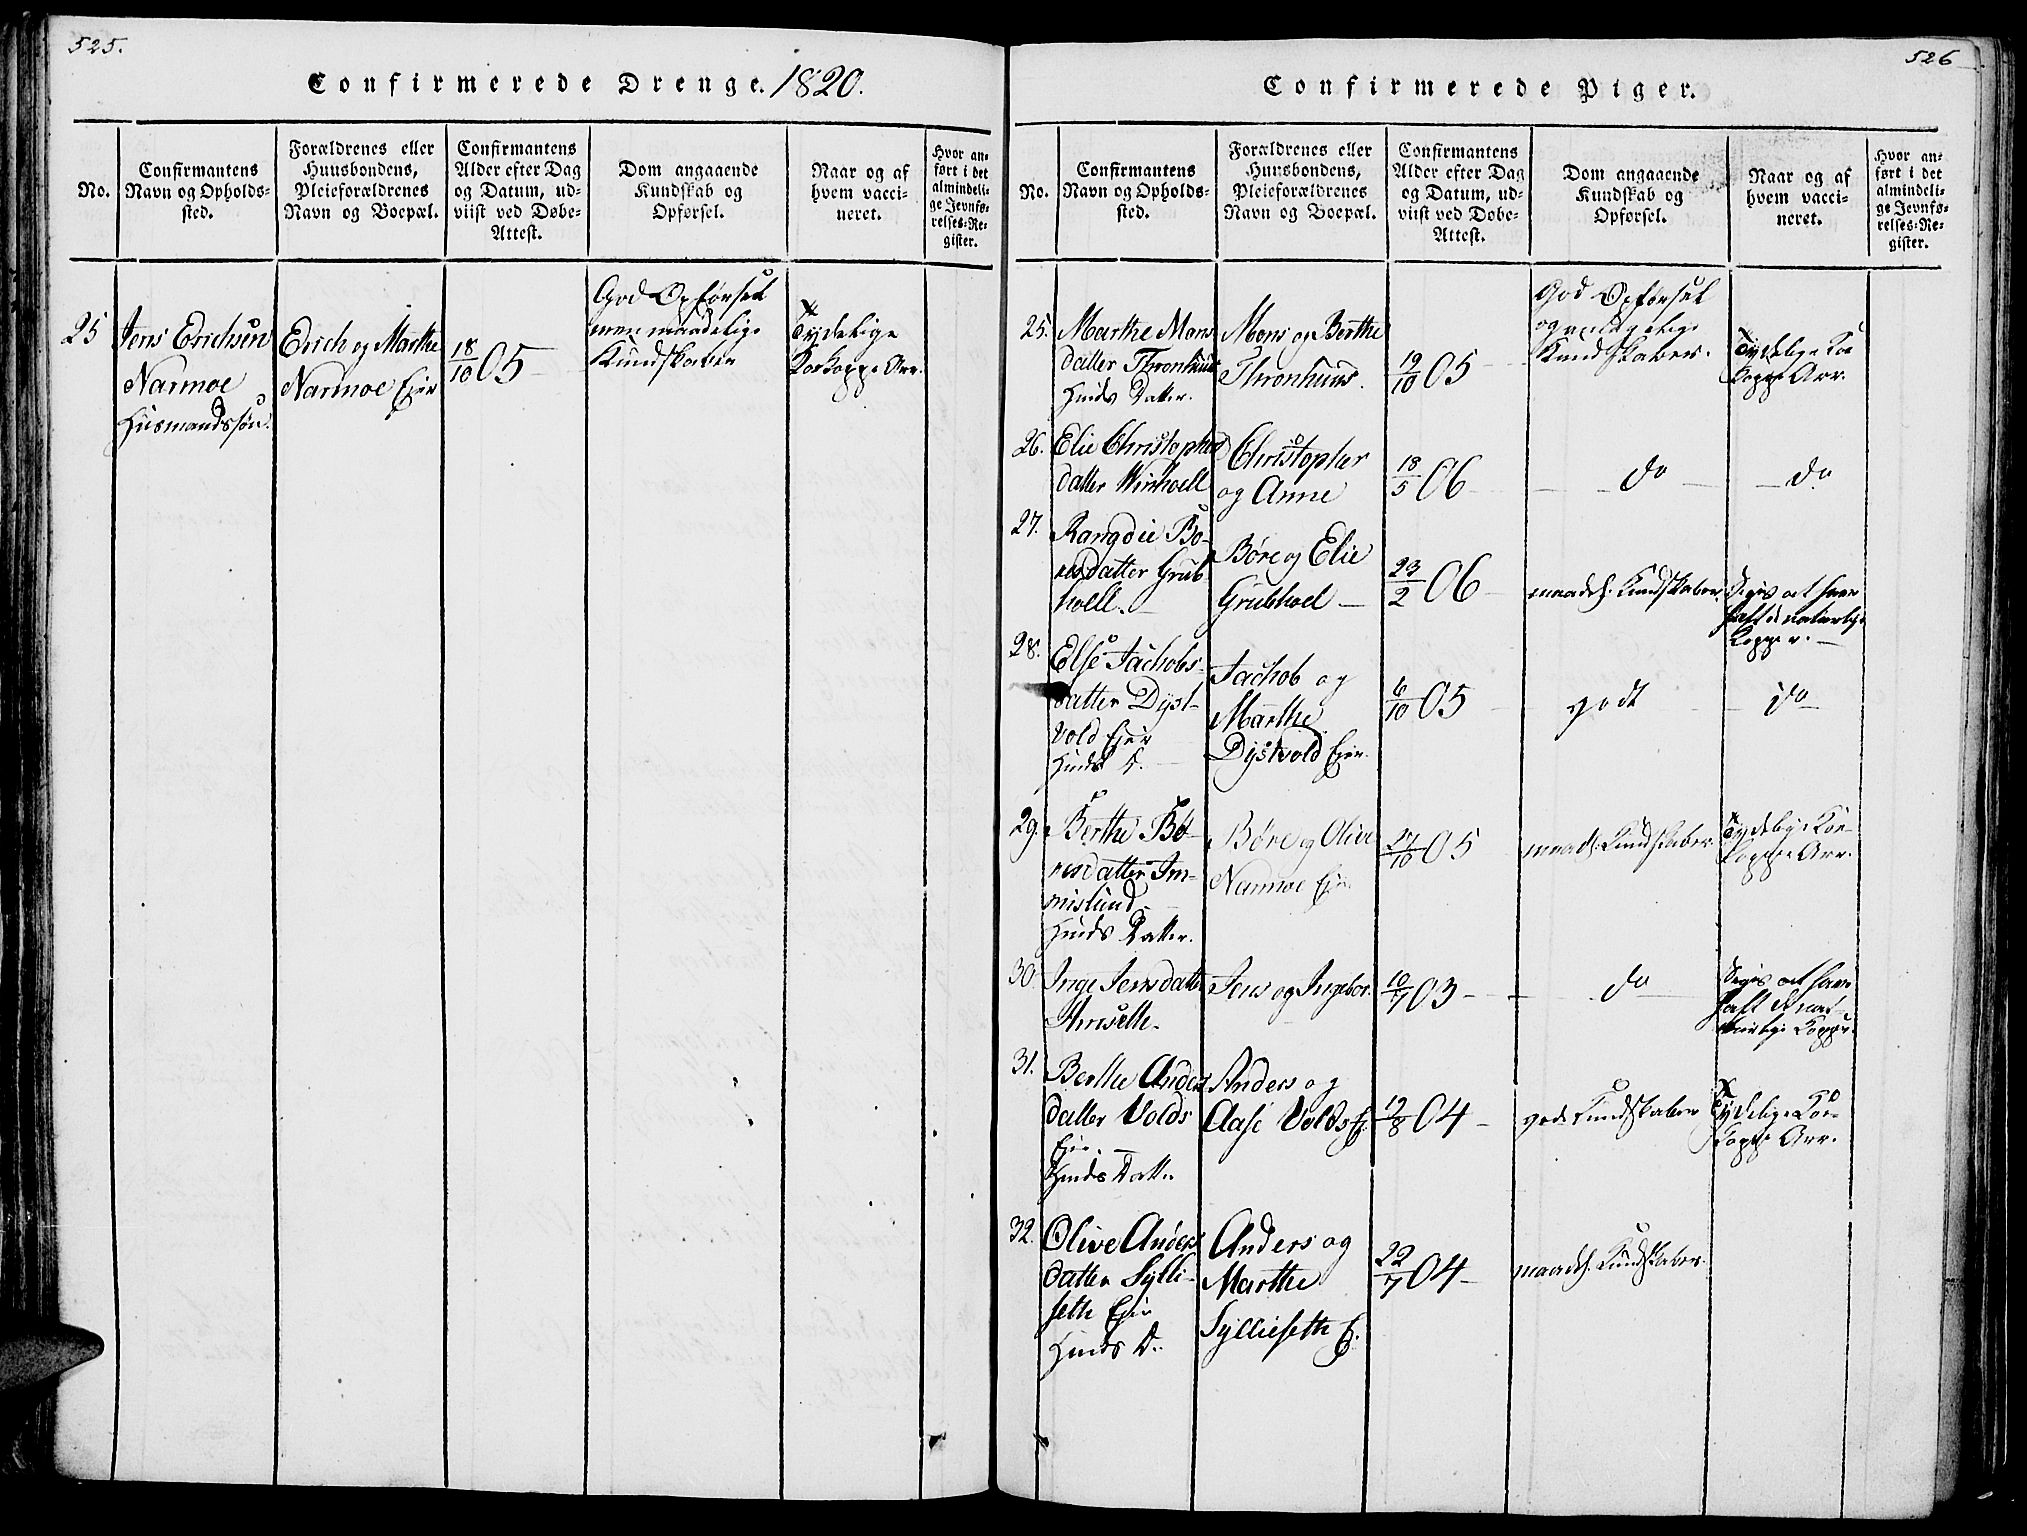 525.
Confirmerede Drenge. 1820.
No.
Confirmantens
Navn og Opholds-
sted.
Forældrenes eller
Huusbondens,
Pleieforældrenes
Navn og Boepæl.
Confirmantens
Alder efter Dag
og Datum, ud-
viist ved Døbe-
Attest.
Dom angaaende
Kundskab og
Opførsel.
Naar og af
hvem vacci-
neret.
Hvor an-
ført i det
almindeli-
ge Jevnfø-
relses-Re-
gister.
25
Jens Erichsen
Narmoe
Huusmandssøn.
Erich og Marthe
Narmoe Ejer
18/10 05
God Opførsel
men maadelige
Kundskaber
Tydelige
Koekoppe Arr.
526
Confirmerede Piger.
No.
Confirmantens
Navn og Opholds-
sted.
Forældrenes eller
Huusbondens,
Pleieforældrenes
Navn og Boepæl.
Confirmantens
Alder efter Dag
og Datum, ud-
viist ved Døbe-
Attest.
Dom angaaende
Kundskab og
Opførsel.
Naar og af
hvem vacci-
neret.
Hvor an-
ført i det
almindeli-
ge Jevnfø-
relses-Re-
gister.
25.
Marthe Mons
datter Thronhuus
Huusds Datter.
Mons og Berthe
Thronhuus.
19/10 05
God Opførsel
og
Kundskaber.
Tydelige Koe
Koppe Arr.
26.
Elie Christophers
datter Winhoell
Christopher
og Anne
18/5 06
do
do
27.
Rangdie Bø-
resdatter Grub
hoell.
Børe og Elie
Grubhoel
23/2 06
maadel. Kundskaber.
Siges at have
haft de naturlige
Kopper.
28.
Else Jachobs-
datter Dyst-
vold Ejer
Huusds D.
Jachob og
Marthe
Dystvold Ejer.
6/10 05
godt
do
29.
Berthe Bø-
resdatter Im-
mislund
Huusds Datter.
Børe og Olive
Narmoe Ejer
27/10 05
maadl. Kundskaber
Tydelige Koe-
koppe Arr.
30.
Inge Jensdatter
Jens og Ingebor.
10/7 03
do
Siges at have
haft de nat-
urlige Kopper.
31.
Berthe Anders
datter Volds
Ejer.
Huusds Datter
Anders og
Aase Volds Ej.
19/8 04
gode Kundskaber
Tydelige Koe-
koppe Arr.
32.
Olive Anders
datter Sylli-
seth Ejer
Huusds D.
Anders og
Marthe
Syllieseth Ej.
22/7 04
maadel. Kundskaber.